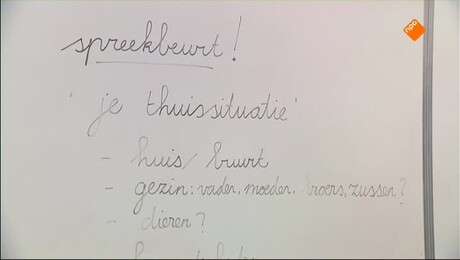 npo
spreekbeurt!
'je thuissituatie'
- huis / buurt
- gezin: vader, moeder, broers, zussen?
- dieren?